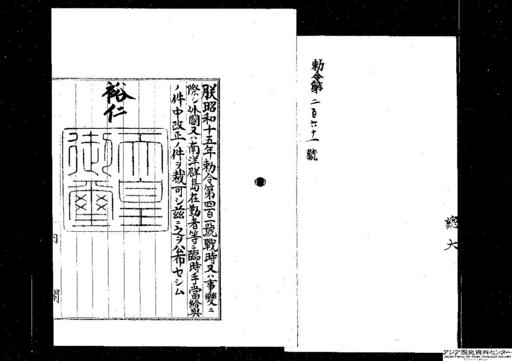 勅令第二百六十一號
朕昭和十五年勅令第四百一號戰時又ハ事變ニ
際シ外國又ハ南洋群島在勤者等ニ臨時手當給與
ノ件中改正ノ件ヲ裁可シ茲ニ之ヲ公布セシム
裕仁
天皇
御璽
内閣
アジア歴史資料センター
Japan Center for Asian Historical Records